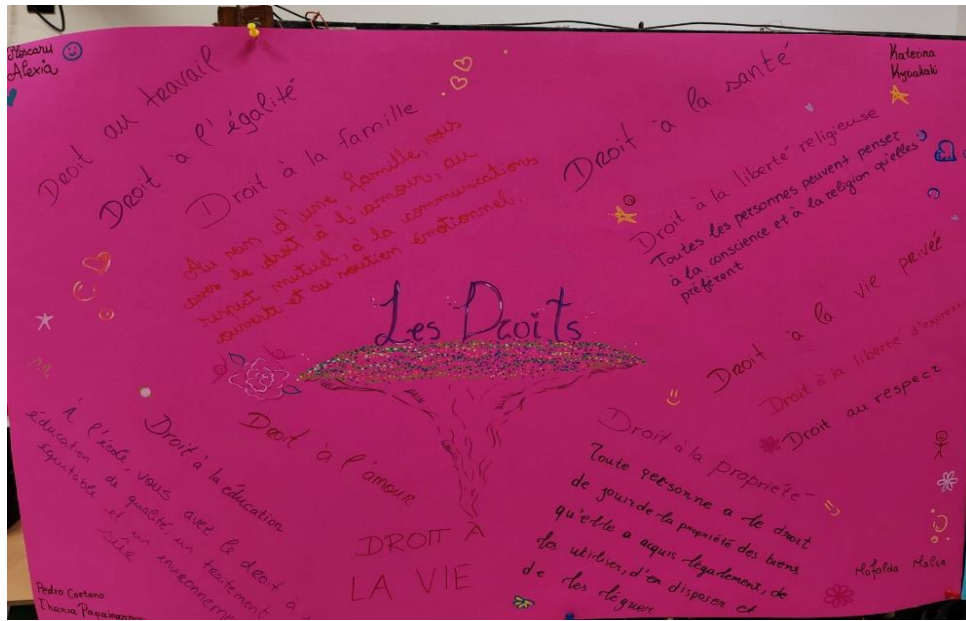 Alexia
Katerina
Kyvakaki
Droit au travail
Droit à l'égalité
Droit à la famille
Au sein d'une famille, vous
avez le droit à l'amour, au
respect mutuel, à la communications
ouverte et au soutien émotionnel.
Droit à la santé
Droit à la liberté religieuse
Toutes les personnes peuvent penser
à la conscience et à la religion qu'elles
préfèrent
Les Droits
Droit à la vie privée
Droit à la liberté d'expre.....
Droit au respect
Droit à l'amour
Droit à la éducation
À l'école, vous avez le droit à
éducation de qualité, un traitement
équitable et un environnement
sûre
DROIT À
LA VIE
Droit à la propriété
Toute personne a le droit
de jouir de la propriété des biens
qu'elle a acquis légalement, de
les utiliser, d'en disposer et
de les léguer
Pedro Caetano
Mafalda Malta